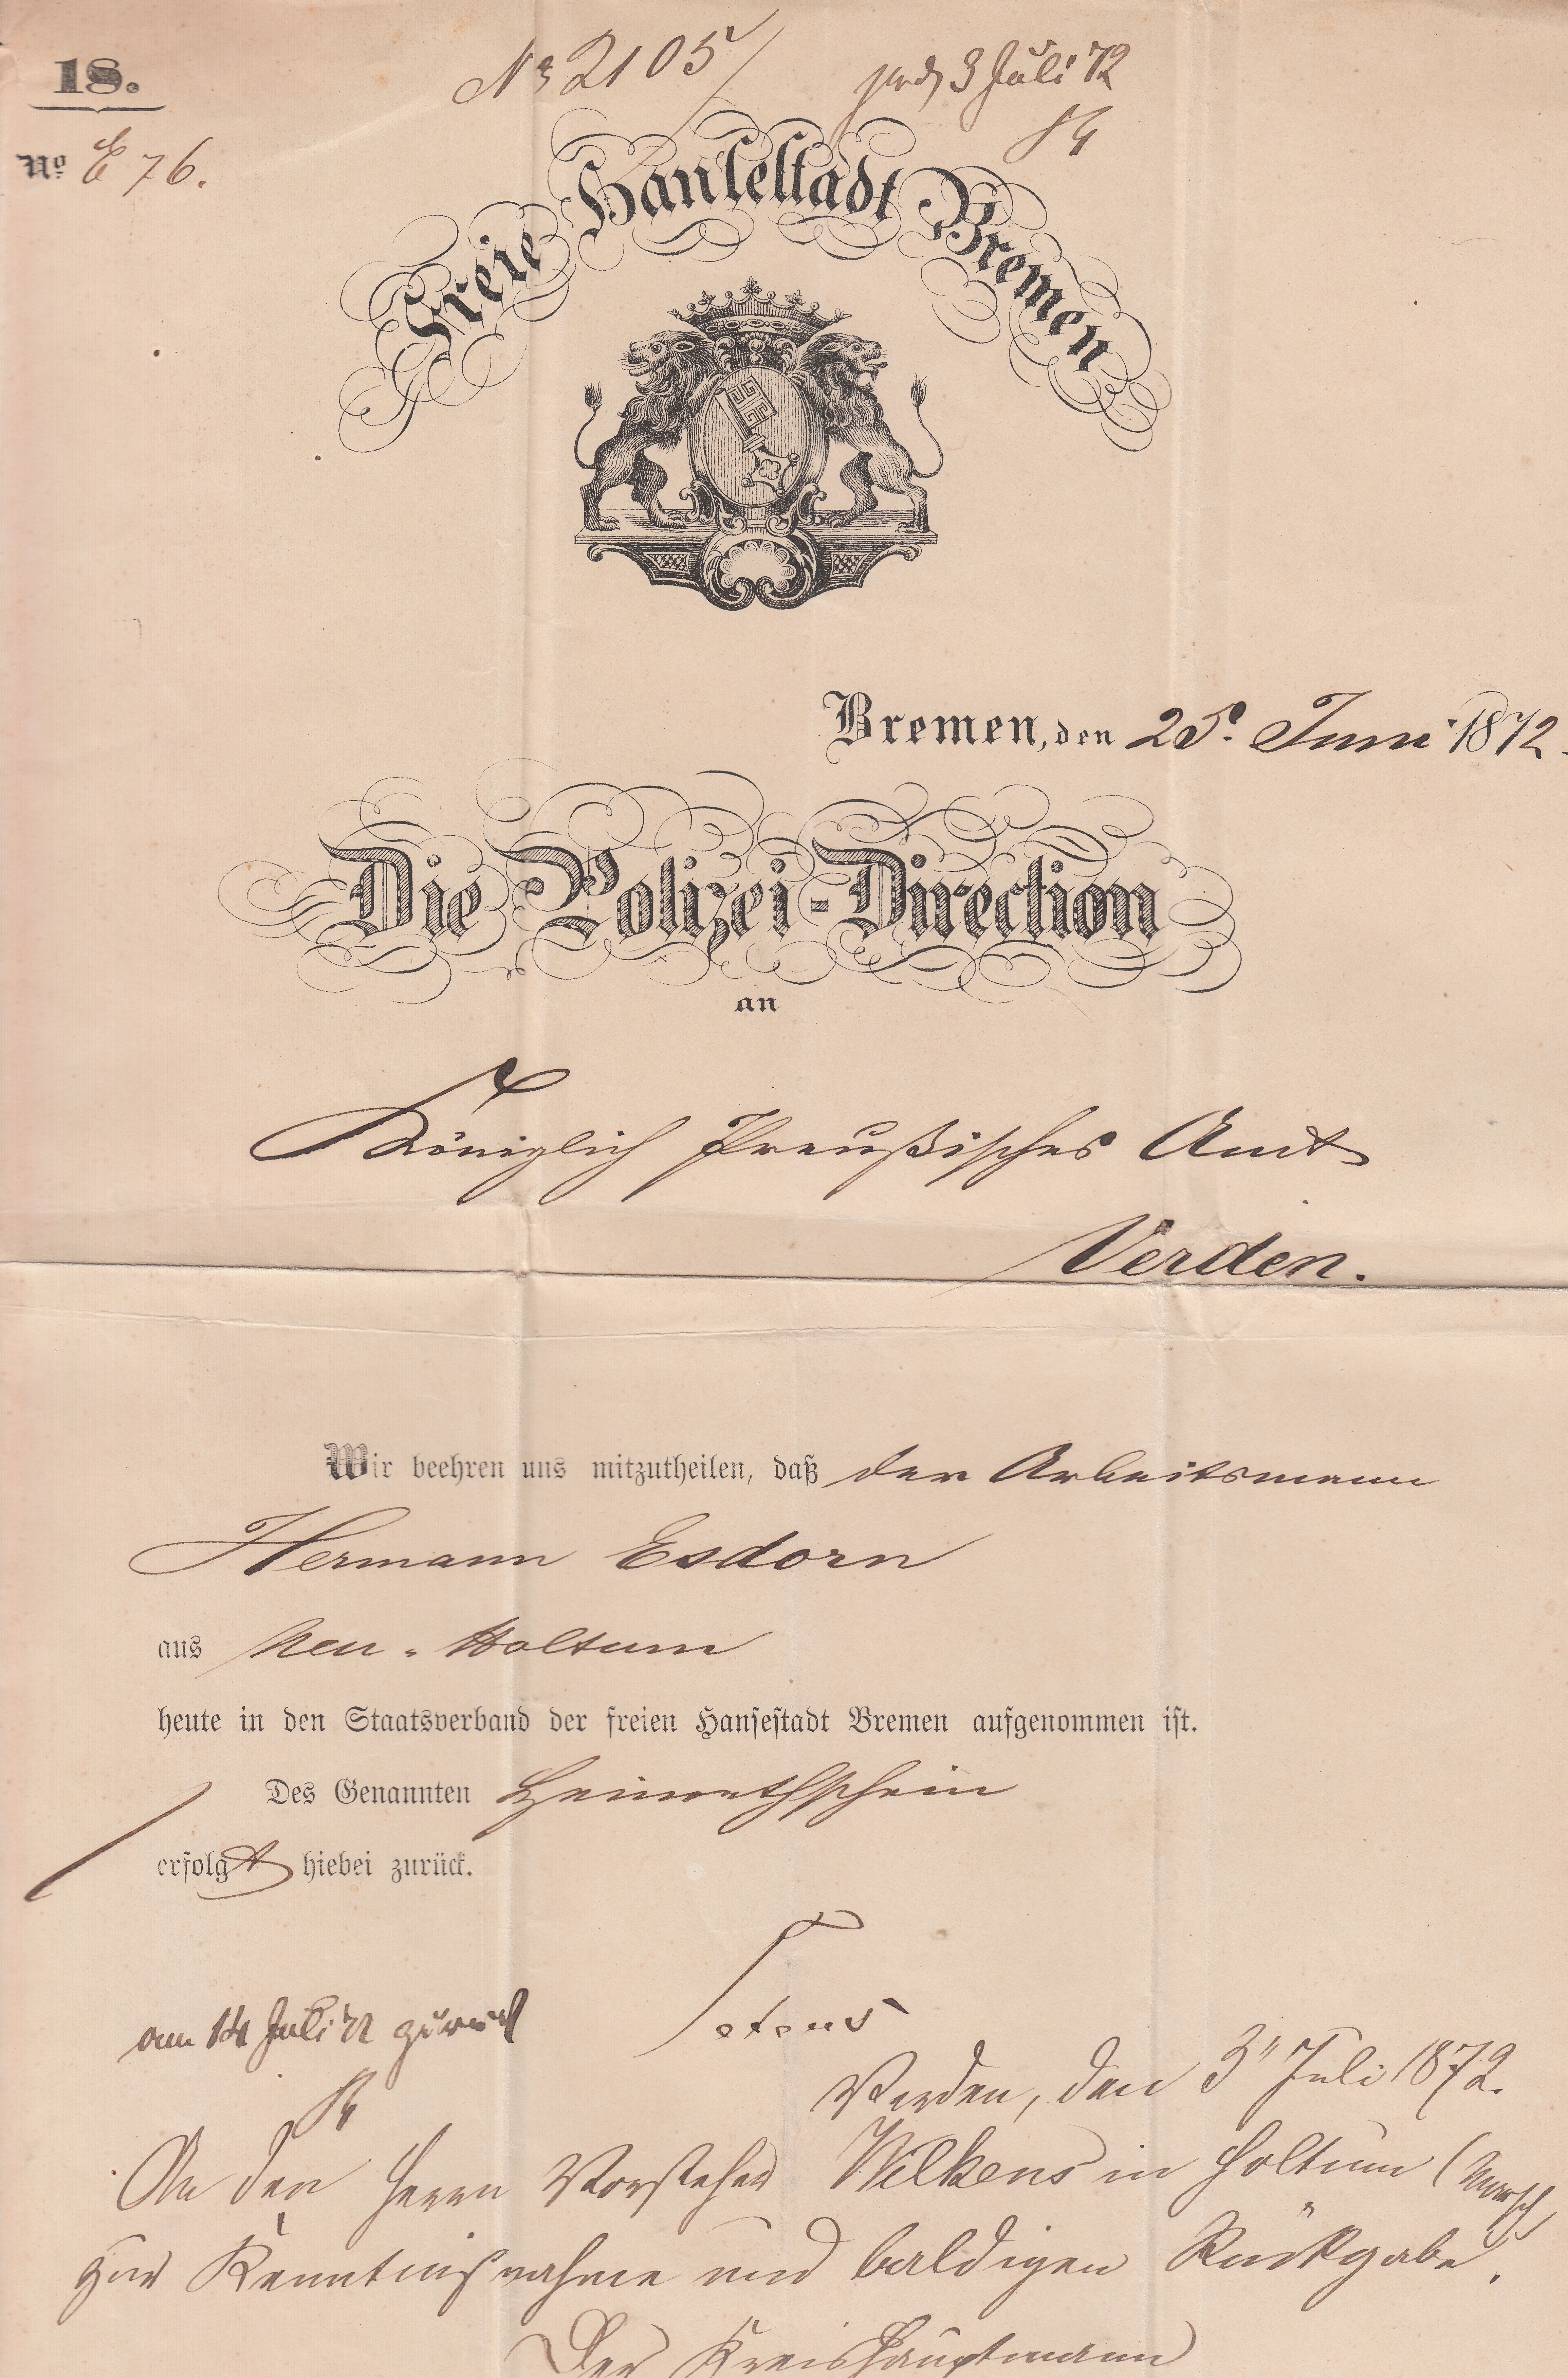 18.
No. E 76.
No 2105
prs. 3 Juli 72
Freie Hansestadt Bremen
Bremen, den 25. Juni 1872.
Die Polizei-Direction
an
Königlich Preußisches Amt
Verden.
Wir beehren uns mitzutheilen, daß der Arbeitsmann
Hermann Esdorn
aus Neu-Holtum
heute in den Staatsverband der freien Hansestadt Bremen aufgenommen ist.
Des Genannten Heimathschein
erfolgt hiebei zurück.
am 14 Juli 72 zurück
Verden, den 3" Juli 1872.
An den Herrn Vorsteher Wilkens in Holtum (Marsch
zur Kenntnißnahme und baldigen Rückgabe.
Der Kreishauptmann